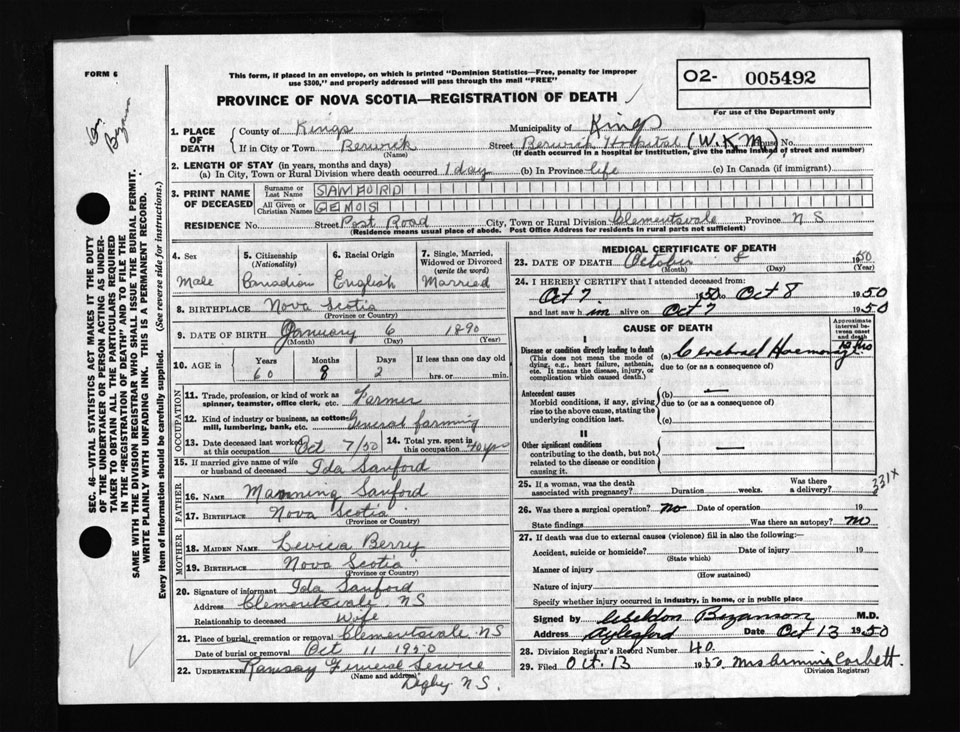 FORM 6
This form, if placed in an envelope, on which is printed "Dominion Statistics—Free, penalty for improper
use $300," and properly addressed will pass through the mail "FREE"
O2- 005492
For use of the Department only
PROVINCE OF NOVA SCOTIA—REGISTRATION OF DEATH
1. PLACE OF DEATH
County of Kings Municipality of Kings
If in City or Town Berwick (Name) Street Berwick Hospital (W.K.M.) House No.
(If death occurred in a hospital or institution, give the name instead of street and number)
2. LENGTH OF STAY (in years, months and days)
(a) In City, Town or Rural Division where death occurred 1 day (b) In Province life (c) In Canada (if immigrant)
3. PRINT NAME OF DECEASED
Surname or Last Name SANFORD
All Given or Christian Names
RESIDENCE No. Street Post Road City, Town or Rural Division Clementsvale Province N S
(Residence means usual place of abode. Post Office Address for residents in rural parts not sufficient)
4. Sex Male
5. Citizenship (Nationality) Canadian
6. Racial Origin English
7. Single, Married, Widowed or Divorced (write the word) Married
8. BIRTHPLACE Nova Scotia
(Province or Country)
9. DATE OF BIRTH January 6 1890
(Month) (Day) (Year)
10. AGE in Years 60 Months 8 Days 2 If less than one day old
hrs. or min.
OCCUPATION
11. Trade, profession, or kind of work as spinner, teamster, office clerk, etc. Farmer
12. Kind of industry or business, as cotton-mill, lumbering, bank, etc. General farming
13. Date deceased last worked at this occupation Oct 7/50 14. Total yrs. spent in this occupation 40 yrs
15. If married give name of wife or husband of deceased Ida Sanford
FATHER
16. NAME Manning Sanford
17. BIRTHPLACE Nova Scotia
(Province or Country)
MOTHER
18. MAIDEN NAME Levica Berry
19. BIRTHPLACE Nova Scotia
(Province or Country)
20. Signature of informant Ida Sanford
Address Clementsvale NS
Relationship to deceased Wife
21. Place of burial, cremation or removal Clementsvale NS
Date of burial or removal Oct 11 1950
22. UNDERTAKER Ramsay Funeral Service
(Name and address)
Digby N.S.
MEDICAL CERTIFICATE OF DEATH
23. DATE OF DEATH October 8 1950
(Month) (Day) (Year)
24. I HEREBY CERTIFY that I attended deceased from:
Oct 7 1950 to Oct 8 1950
and last saw him alive on Oct 7 1950
CAUSE OF DEATH
Approximate interval between onset and death
I
Disease or condition directly leading to death
(This does not mean the mode of dying, e.g., heart failure, asthenia, etc. It means the disease, injury, or complication which caused death.)
(a) Cerebral Haemorrage
due to (or as a consequence of)
Antecedent causes
Morbid conditions, if any, giving rise to the above cause, stating the underlying condition last.
(b) —
due to (or as a consequence of)
(c)
II
Other significant conditions
contributing to the death, but not related to the disease or condition causing it
—
25. If a woman, was the death associated with pregnancy? Duration weeks. Was there a delivery?
331X
26. Was there a surgical operation? no Date of operation 19
State findings Was there an autopsy? no
27. If death was due to external causes (violence) fill in also the following:—
Accident, suicide or homicide? Date of injury 19
(State which)
Manner of injury
(How sustained)
Nature of injury
Specify whether injury occurred in industry, in home, or in public place
Signed by Bezanson M.D.
Address Aylesford Date Oct 13 1950
28. Division Registrar's Record Number 40.
29. Filed Oct. 13 1950 Mrs Corbett.
(Division Registrar)
Bezanson
SEC. 46—VITAL STATISTICS ACT MAKES IT THE DUTY
OF THE UNDERTAKER OR PERSON ACTING AS UNDER-
TAKER TO OBTAIN ALL THE PARTICULARS REQUIRED
IN THE "REGISTRATION OF DEATH" AND TO FILE THE
SAME WITH THE DIVISION REGISTRAR WHO SHALL ISSUE THE BURIAL PERMIT.
WRITE PLAINLY WITH UNFADING INK. THIS IS A PERMANENT RECORD.
Every item of information should be carefully supplied. (See reverse side for instructions.)